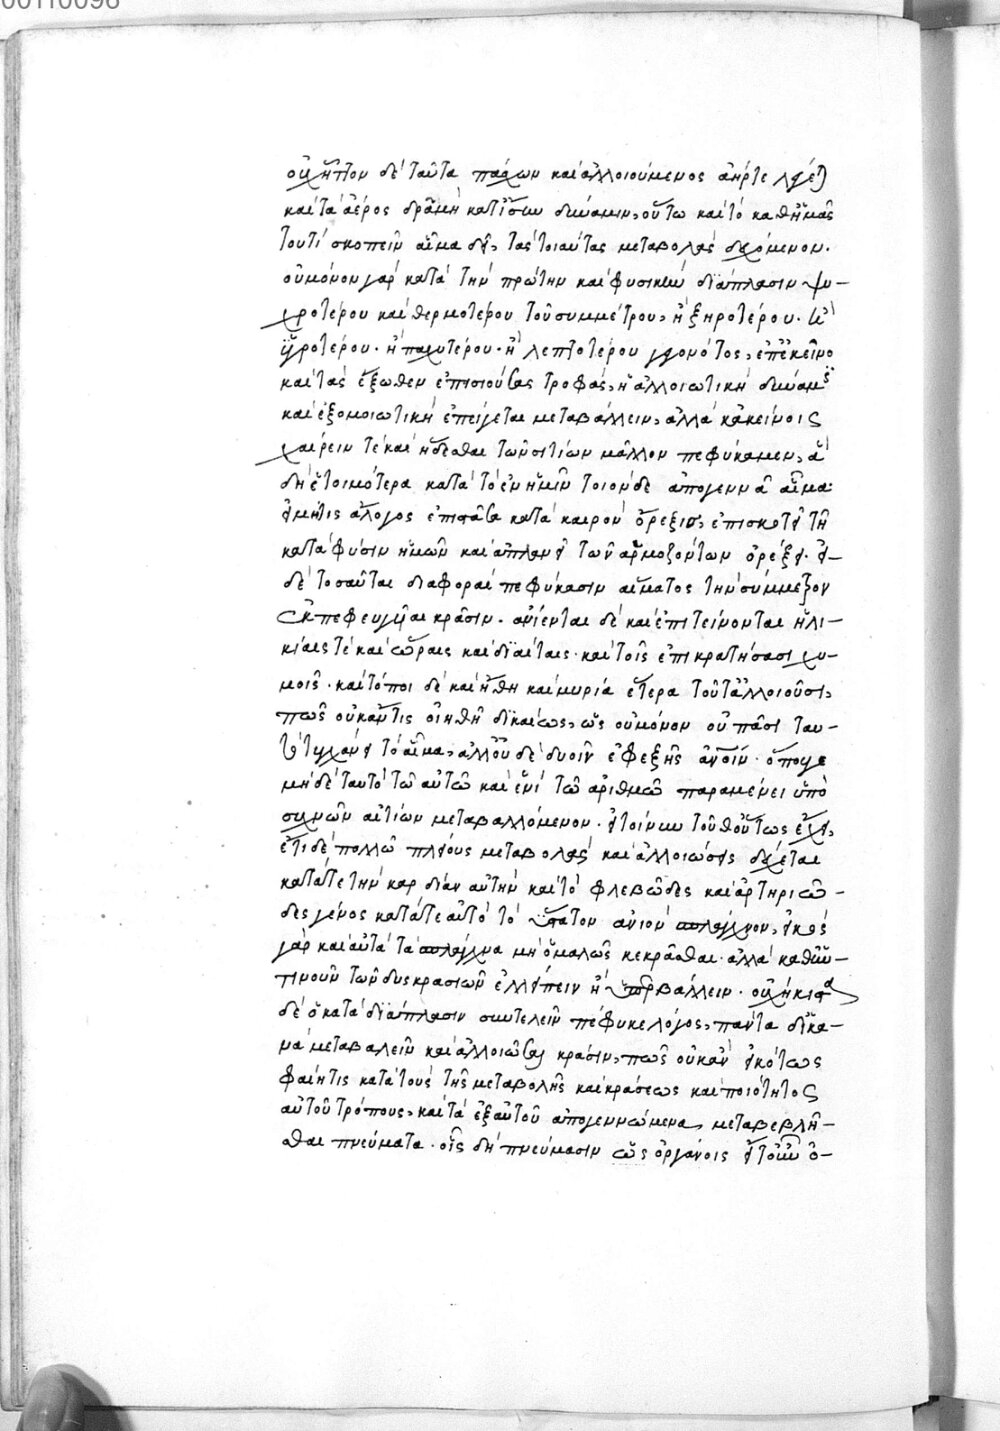 00110096
οὐχ ἧττον δὲ ταῦτα πάσχων καὶ ἀλλοιούμενος ἀήρ τε
καὶ τὰ ἀέρος δρᾶν ἡ κατ' ἴσην δύναμιν, οὕτω καὶ τὸ καθ' ἡμᾶς
τουτὶ σκοπεῖν αἷμα δεῖ, τὰς τοιαύτας μεταβολὰς δεχόμενον.
οὐ μόνον γὰρ κατὰ τὴν πρώτην καὶ φυσικὴν διάπλασιν ψυ-
χροτέρου καὶ θερμοτέρου τοῦ συμμέτρου, ἢ ξηροτέρου. καὶ
ὑγροτέρου. ἢ παχυτέρου. ἢ λεπτοτέρου γεγονότος, ἐπ' ἐκεῖνο
καὶ τὰς ἔξωθεν ἐπεισιούσας τροφάς, ἡ ἀλλοιωτικὴ δύναμις
καὶ ἐξομοιωτικὴ ἐπείγεται μεταβάλλειν, ἀλλὰ κἀκείνοις
χαίρειν τὲ καὶ ἥδεσθαι τῶν σιτίων μᾶλλον πεφύκαμεν, ἃ
δὴ ἑτοιμότερα κατὰ τὸ ἐν ἡμῖν τοιόνδε ἀπογεννᾶν αἷμα·
εἰ μήτις ἄλογος ἐπιστᾶσα κατὰ καιρὸν ὄρεξις, ἐπισκοτεῖ τῇ
κατὰ φύσιν ἡμῶν καὶ ἀπλανεῖ τῶν ἁρμοζόντων ὀρέξει. εἰ
δὲ τοσαῦται διαφοραὶ πεφύκασιν αἵματος τὴν σύμμετρον
ἐκπεφευγυῖαι κρᾶσιν. ἀνίενται δὲ καὶ ἐπιτείνονται ἡλι-
κίαις τὲ καὶ ὥραις καὶ διαίταις. καὶ τοῖς ἐπικρατήσασι χυ-
μοῖς. καὶ τόποι δὲ καὶ ἤθη καὶ μυρία ἕτερα τοῦτ' ἀλλοιοῦσι,
πῶς οὐκ ἄν τις οἰηθῇ δικαίως, ὡς οὐ μόνον οὐ πᾶσι ταυ-
τὸ τυγχάνει τὸ αἷμα, ἀλλ' οὐδὲ δυοῖν ἐφεξῆς ἀνοῖν. ὅπου γε
μὴ δὲ ταυτὸ τῷ αὐτῷ καὶ ἑνὶ τῷ ἀριθμῷ παραμένει ὑπὸ
συχνῶν αἰτίων μεταβαλλόμενον. εἰ τοίνυν τοῦθ' οὕτως ἔχει,
ἔτι δὲ πολλῷ πλείους μεταβολὰς καὶ ἀλλοιώσεις δέχεται
κατά τε τὴν καρδίαν αὐτὴν καὶ τὸ φλεβῶδες καὶ ἀρτηριῶ-
δες γένος κατά τε αὐτὸ τὸ ὕπατον ἀνιὸν σπλάγχνον, εἰκὸς
γὰρ καὶ αὐτὰ τὰ σπλάγχνα μὴ ὁμαλῶς κεκρᾶσθαι. ἀλλὰ καθ' ἥν-
τιν οὖν τῶν δυσκρασιῶν ἐλλείπειν ἢ ὑπερβάλλειν. οὐχ ἥκιστα
δὲ ὁ κατὰ διάπλασιν συντελεῖν πέφυκε λόγος, πάντα δὴ ἅμα-
μα μεταβαλεῖν καὶ ἀλλοιῶσαι κρᾶσιν, πῶς οὐκ ἂν εἰκότως
φαίη τις κατὰ τοὺς τῆς μεταβολῆς καὶ κράσεως καὶ ποιότητος
αὐτοῦ τρόπους, καὶ τὰ ἐξ αὐτοῦ ἀπογεννώμενα, μεταβεβλῆ-
σθαι πνεύματα. οἷς δὴ πνεύμασιν ὡς ὀργάνοις εἰ τοίνυν ὁ-